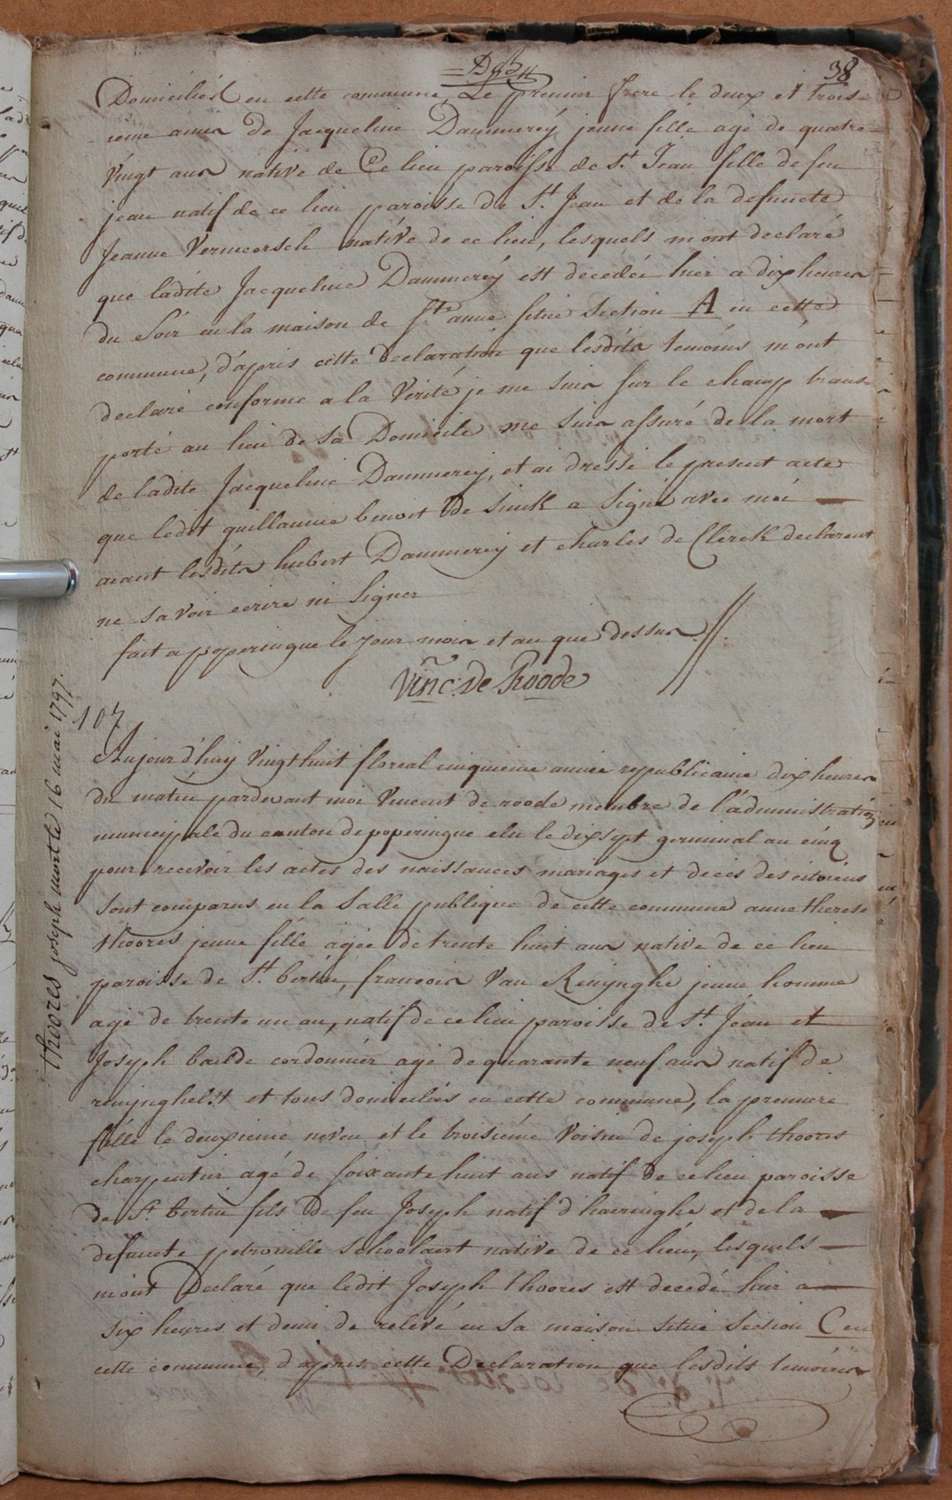 38
Domiciliés en cette commune, Le premier frere le deux et trois-
ieme amis de Jacqueline Dammereÿ jeune fille agé de quatre-
vingt ans native de Ce lieu paroisse de St Jean fille de feu
jean natif de ce lieu paroisse de St Jean et de la defuncte
Jeanne Vermeersch native de ce lieu, lesquels m'ont declaré
que ladite Jacqueline Dammereÿ est decedée hier a dix heures
du soir en la maison de Ste anne situé section A en cette
commune, d'apres cette Declaration que lesdits temoins m'ont
declaré conforme a la Verité, je me suis sur le champ trans-
porté au lieu de sa Domicile me suis assuré de la mort
de ladite Jacqueline Dammereÿ, et ai dressé le present acte
que ledit guillaume benoit de Sinck a signé avec moi
aiant lesdits hubert Dammereÿ et charles de Clerck declarent
ne savoir ecrire ni signer
fait a poperingue le jour mois et an que dessus
Vinc: De Roode
107
thoores joseph morte 16 mai 1797.
Aujourd'huij vingt huit floreal cinquieme année republicaine dix heures
du matin pardevant moi Vincent de roode membre de l'administration
municipale du canton de poperingue elu le dixsept germinal an cinq
pour recevoir les actes des naissances mariages et décès des citoiens
sont comparus en la Salle publique de cette commune anne therese
thoores jeune fille agée de trente huit ans native de ce lieu
paroisse de St. bertin, françois Van Renynghe jeune homme
agé de trente un an, natif de ce lieu paroisse de St. Jean et
Joseph baelde cordonnier agé de quarante neuf ans natif de
renynghelst et tous domiciliés en cette commune, la premiere
fille le deuxieme neveu et le troisiéme voisin de joseph thoores
charpentier agé de soixante huit ans natif de ce lieu paroisse
de St. bertin fils de feu Joseph natif d'haeringhe et de la
defuncte petronille schoolaert native de ce lieu, lesquels
m'ont Declaré que ledit Joseph thoores est decedé hier a
six heures et demi de relevé en sa maison situé section C en
cette commune, d'apres cette Declaration que lesdits temoins